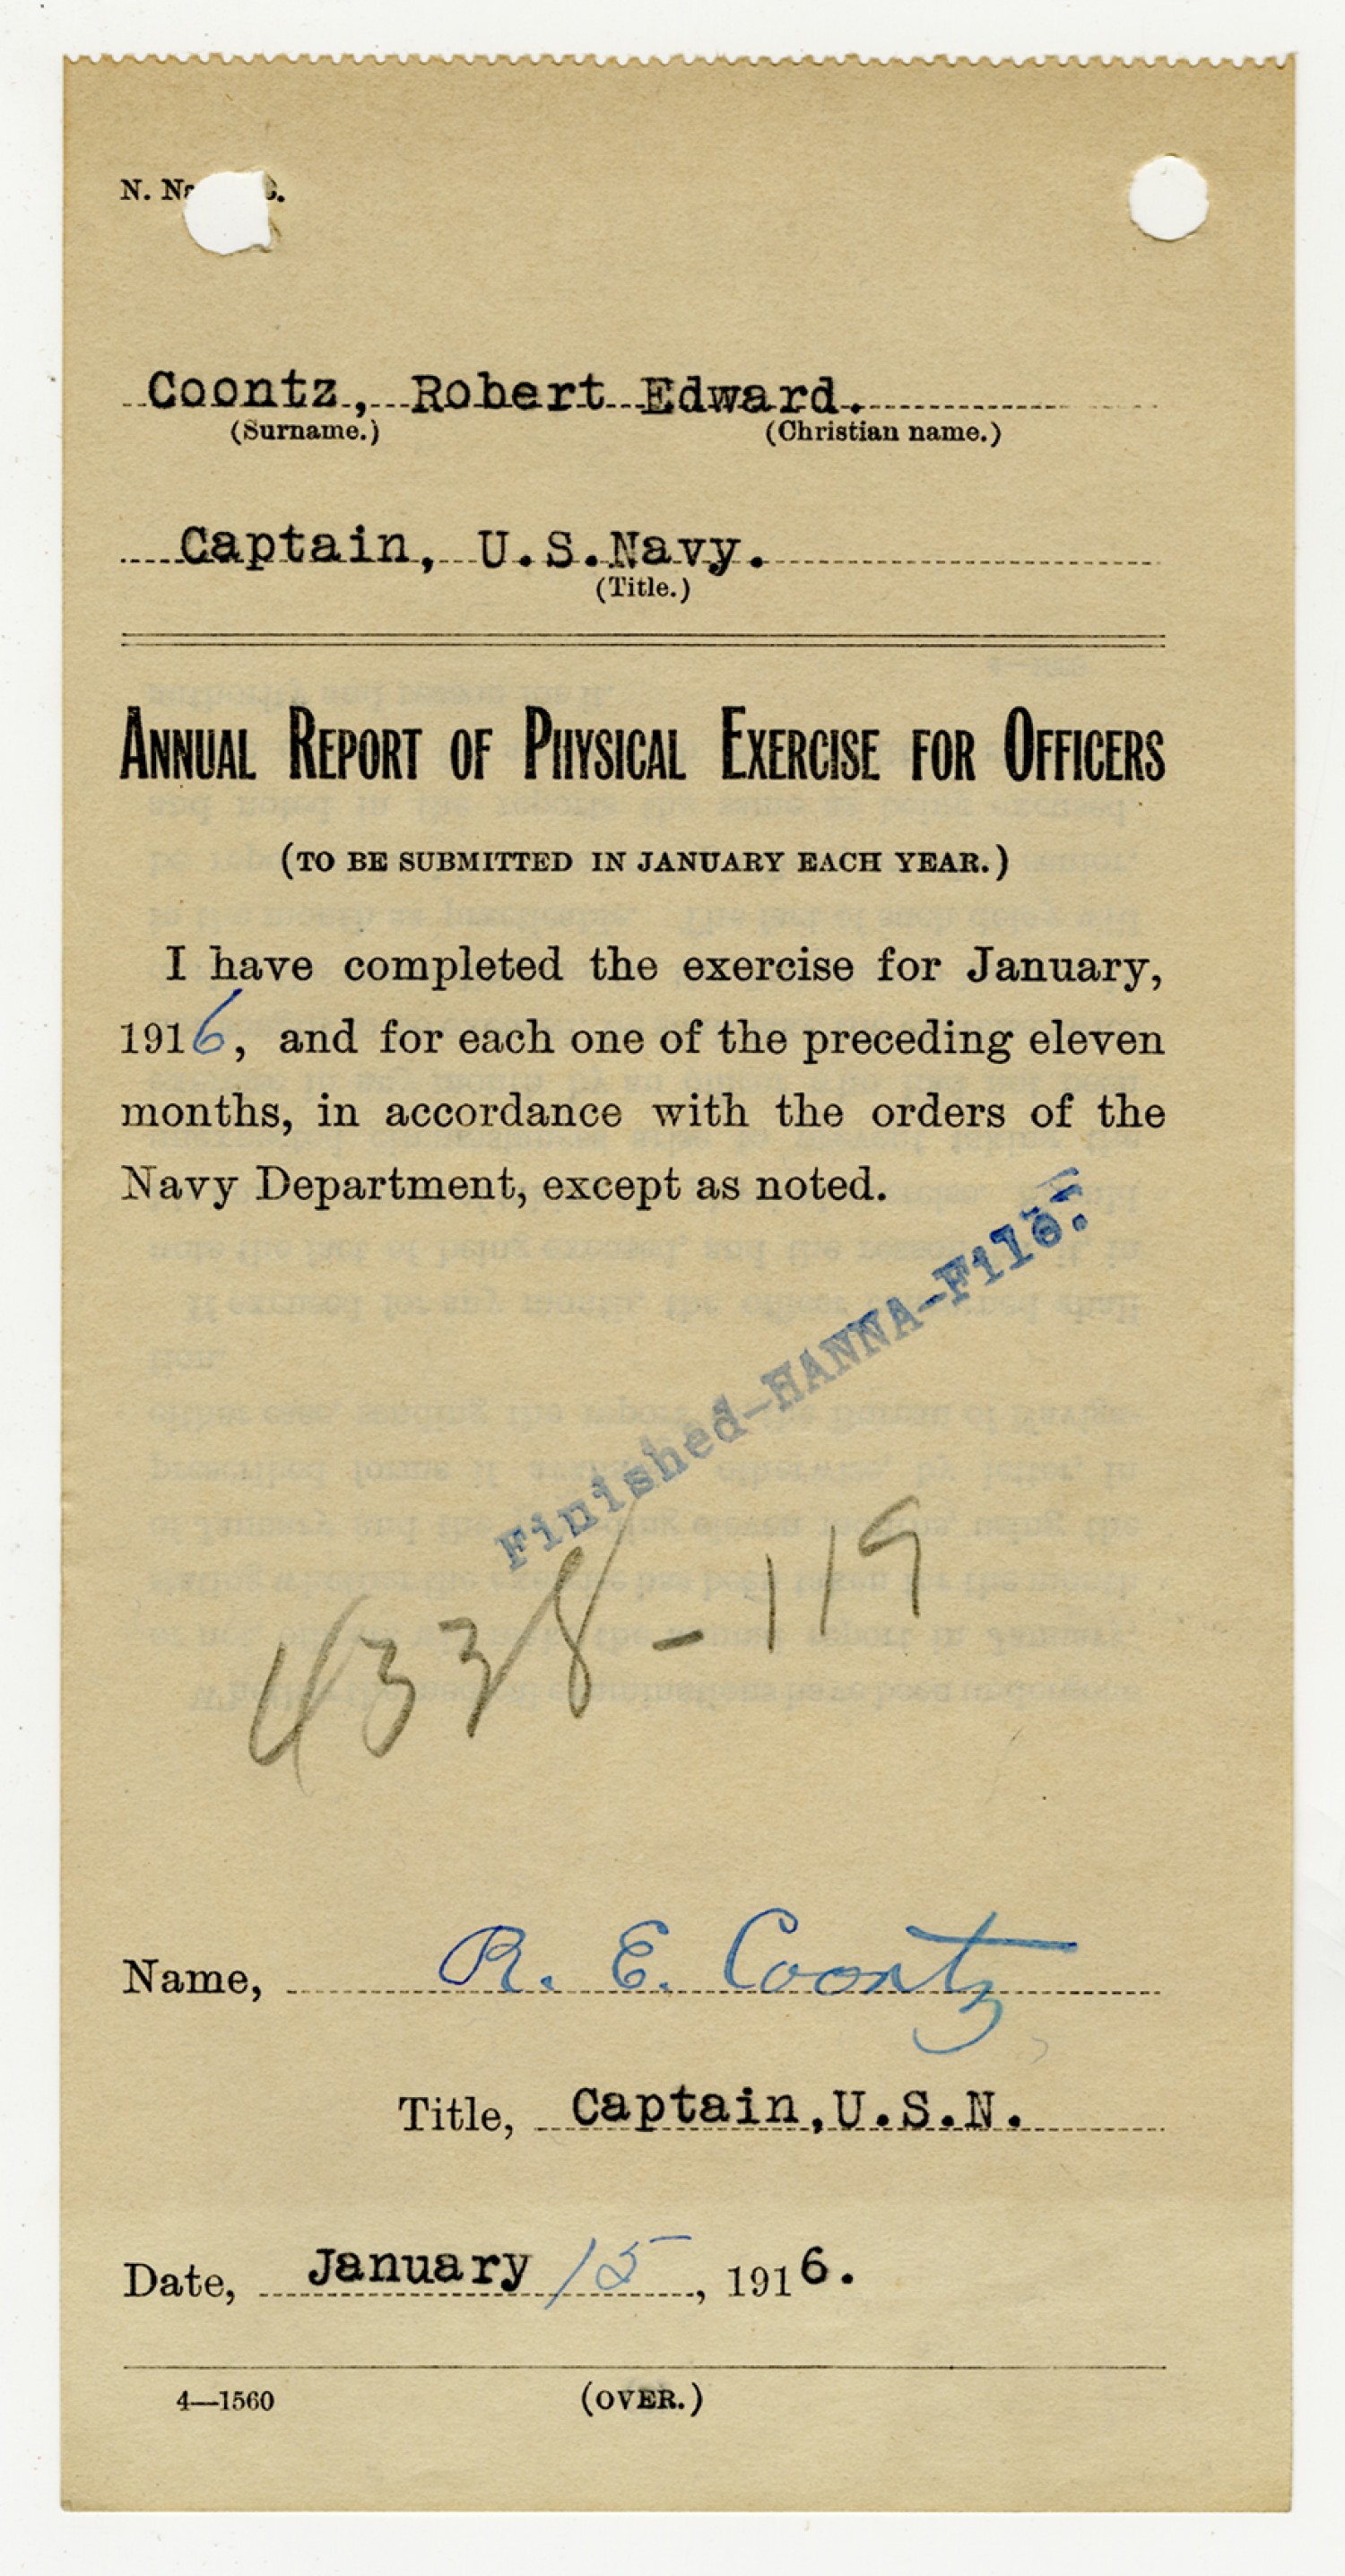 N. Na
Coontz, Robert Edward.
(Surname.) (Christian name.)
Captain, U.S.Navy.
(Title.)
ANNUAL REPORT OF PHYSICAL EXERCISE FOR OFFICERS
(TO BE SUBMITTED IN JANUARY EACH YEAR.)
I have completed the exercise for January,
1916, and for each one of the preceding eleven
months, in accordance with the orders of the
Navy Department, except as noted.
Finished-HANNA-File.
4338-119
Name, R. E. Coontz
Title, Captain,U.S.N.
Date, January 15, 1916.
4—1560 (OVER.)